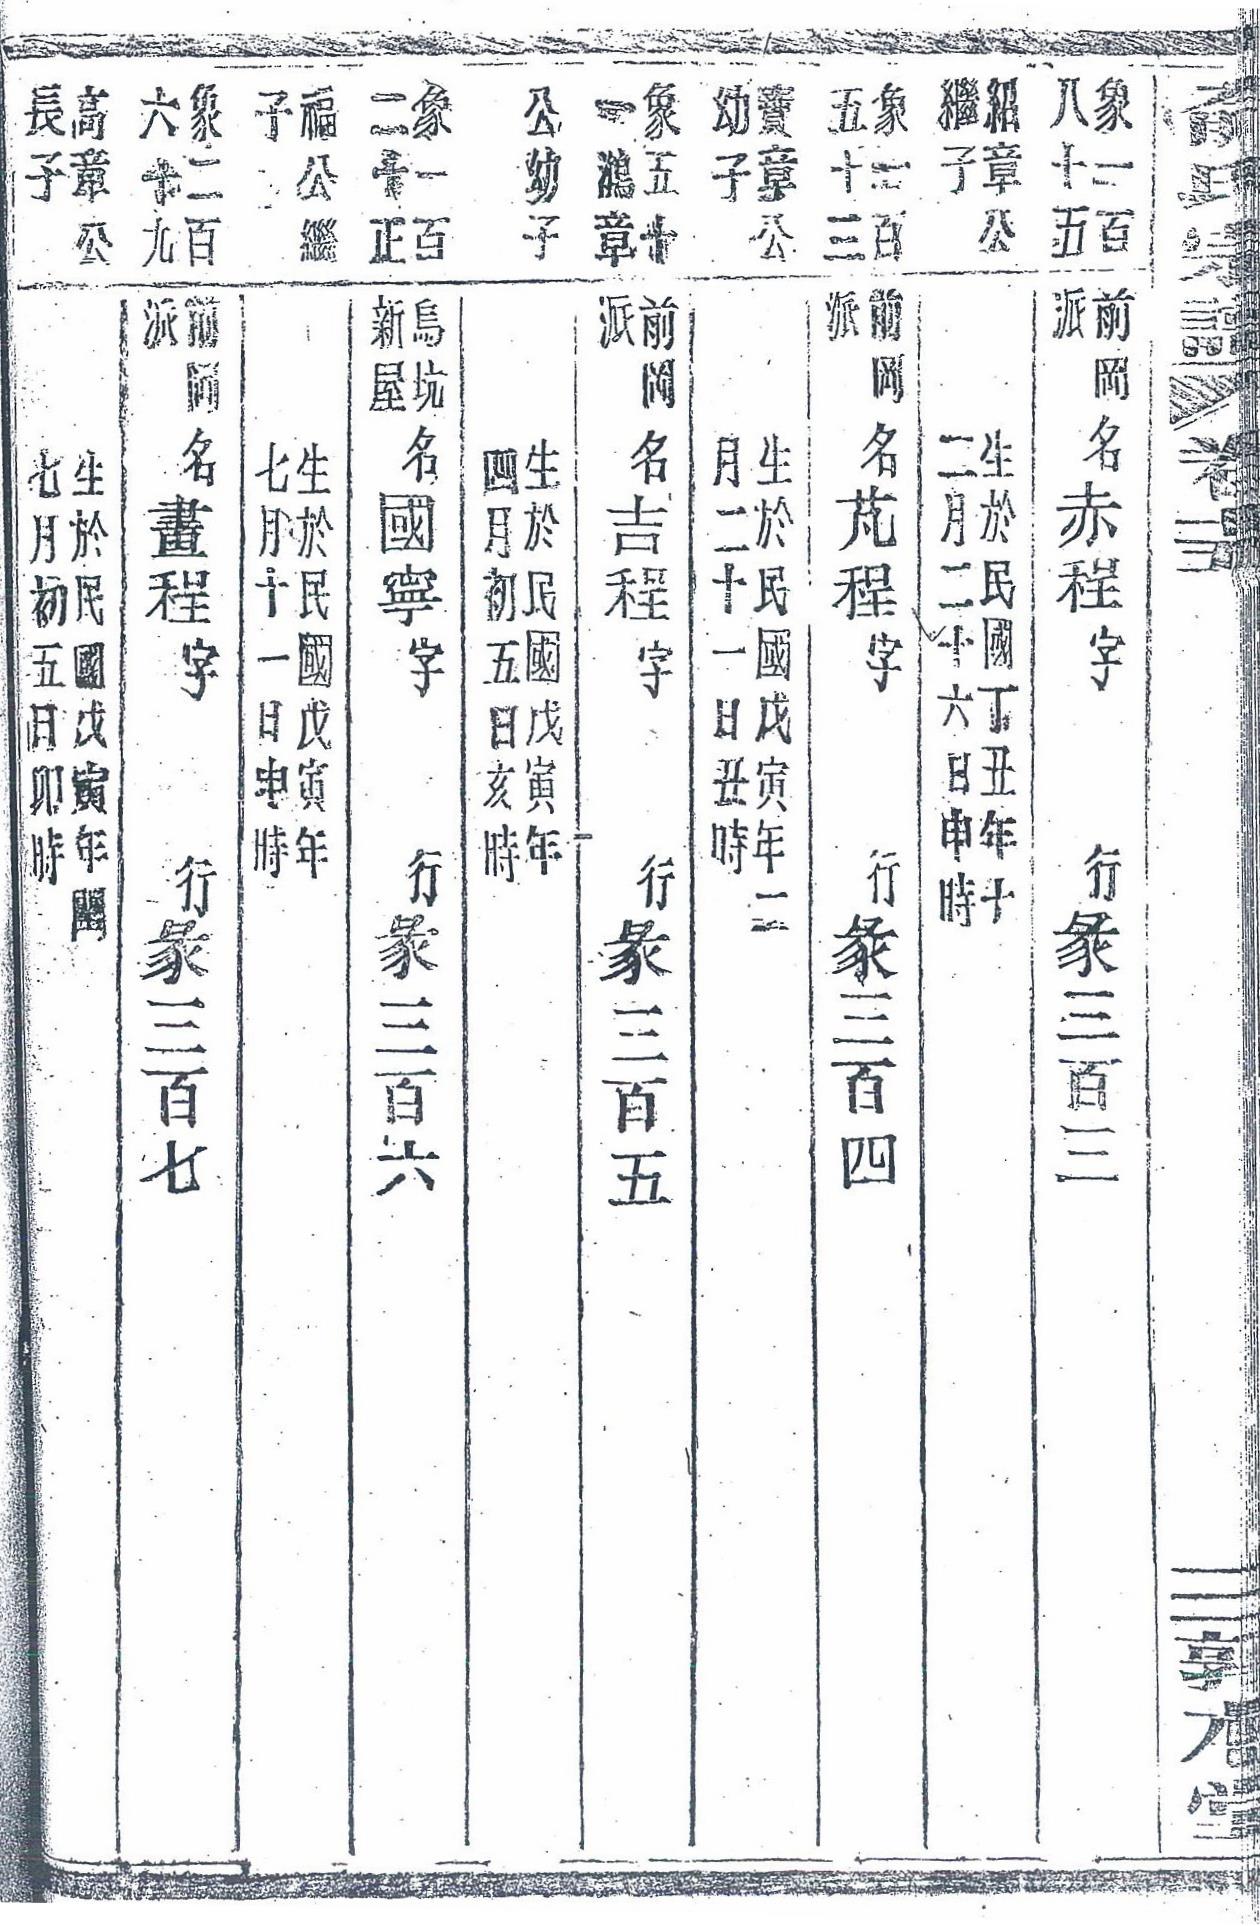 氏宗譜 卷
象一百
八十五
紹章公
繼子
前岡
派
名赤程字 行彖三百三
生於民國丁丑年十
二月二十六日申時
象一百
五十三
寶章公
幼子
前岡
派
名芃程字 行彖三百四
生於民國戊寅年二
月二十一日丑時
象五十
一鴻章
公幼子
前岡
派
名吉程字 行彖三百五
生於民國戊寅年
四月初五日亥時
象一百
二十正
福公繼
子
烏坑
新屋
名國寧字 行彖三百六
生於民國戊寅年
七月十一日申時
象二百
六十九
高章公
長子
前岡
派
名畫程字 行彖三百七
生於民國戊寅年閏
七月初五日卯時
堂